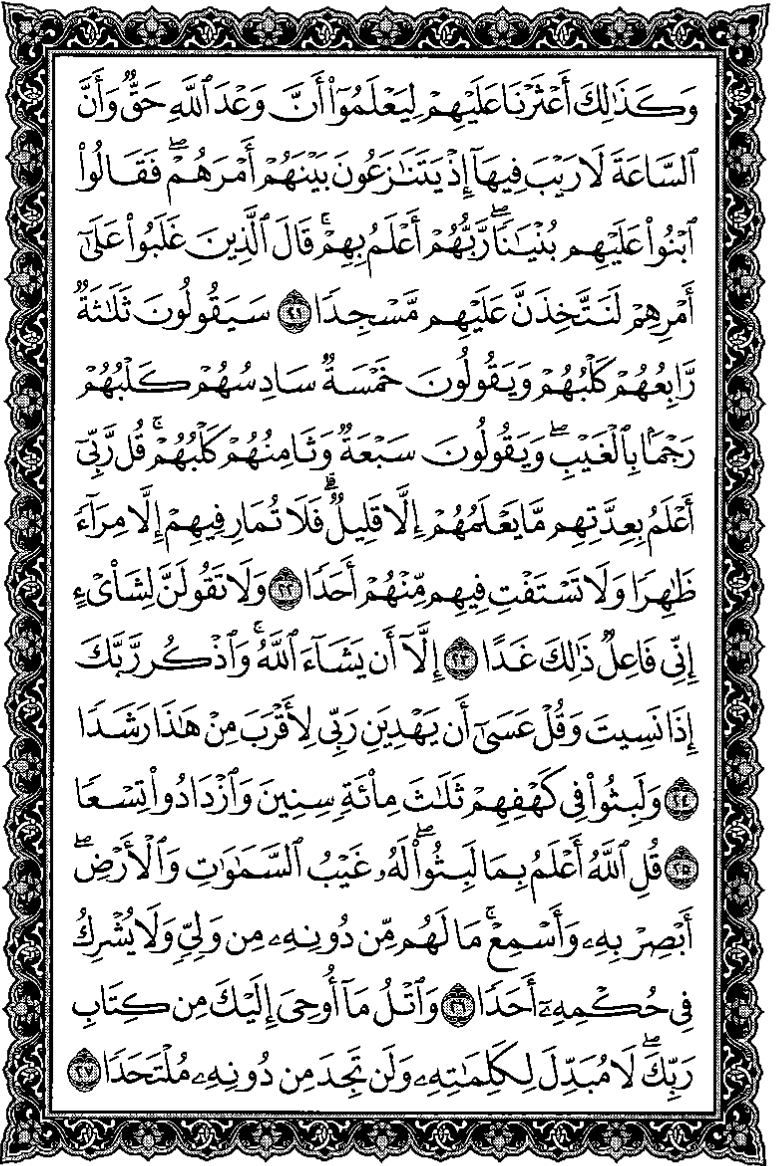 وَكَذَٰلِكَ أَعْثَرْنَا عَلَيْهِمْ لِيَعْلَمُوٓا۟ أَنَّ وَعْدَ ٱللَّهِ حَقٌّ وَأَنَّ
ٱلسَّاعَةَ لَا رَيْبَ فِيهَآ إِذْ يَتَنَٰزَعُونَ بَيْنَهُمْ أَمْرَهُمْ ۖ فَقَالُوا۟
ٱبْنُوا۟ عَلَيْهِم بُنْيَٰنًا ۖ رَّبُّهُمْ أَعْلَمُ بِهِمْ ۚ قَالَ ٱلَّذِينَ غَلَبُوا۟ عَلَىٰٓ
أَمْرِهِمْ لَنَتَّخِذَنَّ عَلَيْهِم مَّسْجِدًا ٢١ سَيَقُولُونَ ثَلَٰثَةٌ
رَّابِعُهُمْ كَلْبُهُمْ وَيَقُولُونَ خَمْسَةٌ سَادِسُهُمْ كَلْبُهُمْ
رَجْمًۢا بِٱلْغَيْبِ ۖ وَيَقُولُونَ سَبْعَةٌ وَثَامِنُهُمْ كَلْبُهُمْ ۚ قُل رَّبِّىٓ
أَعْلَمُ بِعِدَّتِهِم مَّا يَعْلَمُهُمْ إِلَّا قَلِيلٌ ۗ فَلَا تُمَارِ فِيهِمْ إِلَّا مِرَآءً
ظَٰهِرًا وَلَا تَسْتَفْتِ فِيهِم مِّنْهُمْ أَحَدًا ٢٢ وَلَا تَقُولَنَّ لِشَا۟ىْءٍ
إِنِّى فَاعِلٌ ذَٰلِكَ غَدًا ٢٣ إِلَّآ أَن يَشَآءَ ٱللَّهُ ۚ وَٱذْكُر رَّبَّكَ
إِذَا نَسِيتَ وَقُلْ عَسَىٰٓ أَن يَهْدِيَنِ رَبِّى لِأَقْرَبَ مِنْ هَٰذَا رَشَدًا
٢٤ وَلَبِثُوا۟ فِى كَهْفِهِمْ ثَلَٰثَ مِا۟ئَةٍ سِنِينَ وَٱزْدَادُوا۟ تِسْعًا
٢٥ قُلِ ٱللَّهُ أَعْلَمُ بِمَا لَبِثُوا۟ ۖ لَهُۥ غَيْبُ ٱلسَّمَٰوَٰتِ وَٱلْأَرْضِ ۖ
أَبْصِرْ بِهِۦ وَأَسْمِعْ ۚ مَا لَهُم مِّن دُونِهِۦ مِن وَلِىٍّ وَلَا يُشْرِكُ
فِى حُكْمِهِۦٓ أَحَدًا ٢٦ وَٱتْلُ مَآ أُوحِىَ إِلَيْكَ مِن كِتَابِ
رَبِّكَ ۖ لَا مُبَدِّلَ لِكَلِمَٰتِهِۦ وَلَن تَجِدَ مِن دُونِهِۦ مُلْتَحَدًا ٢٧